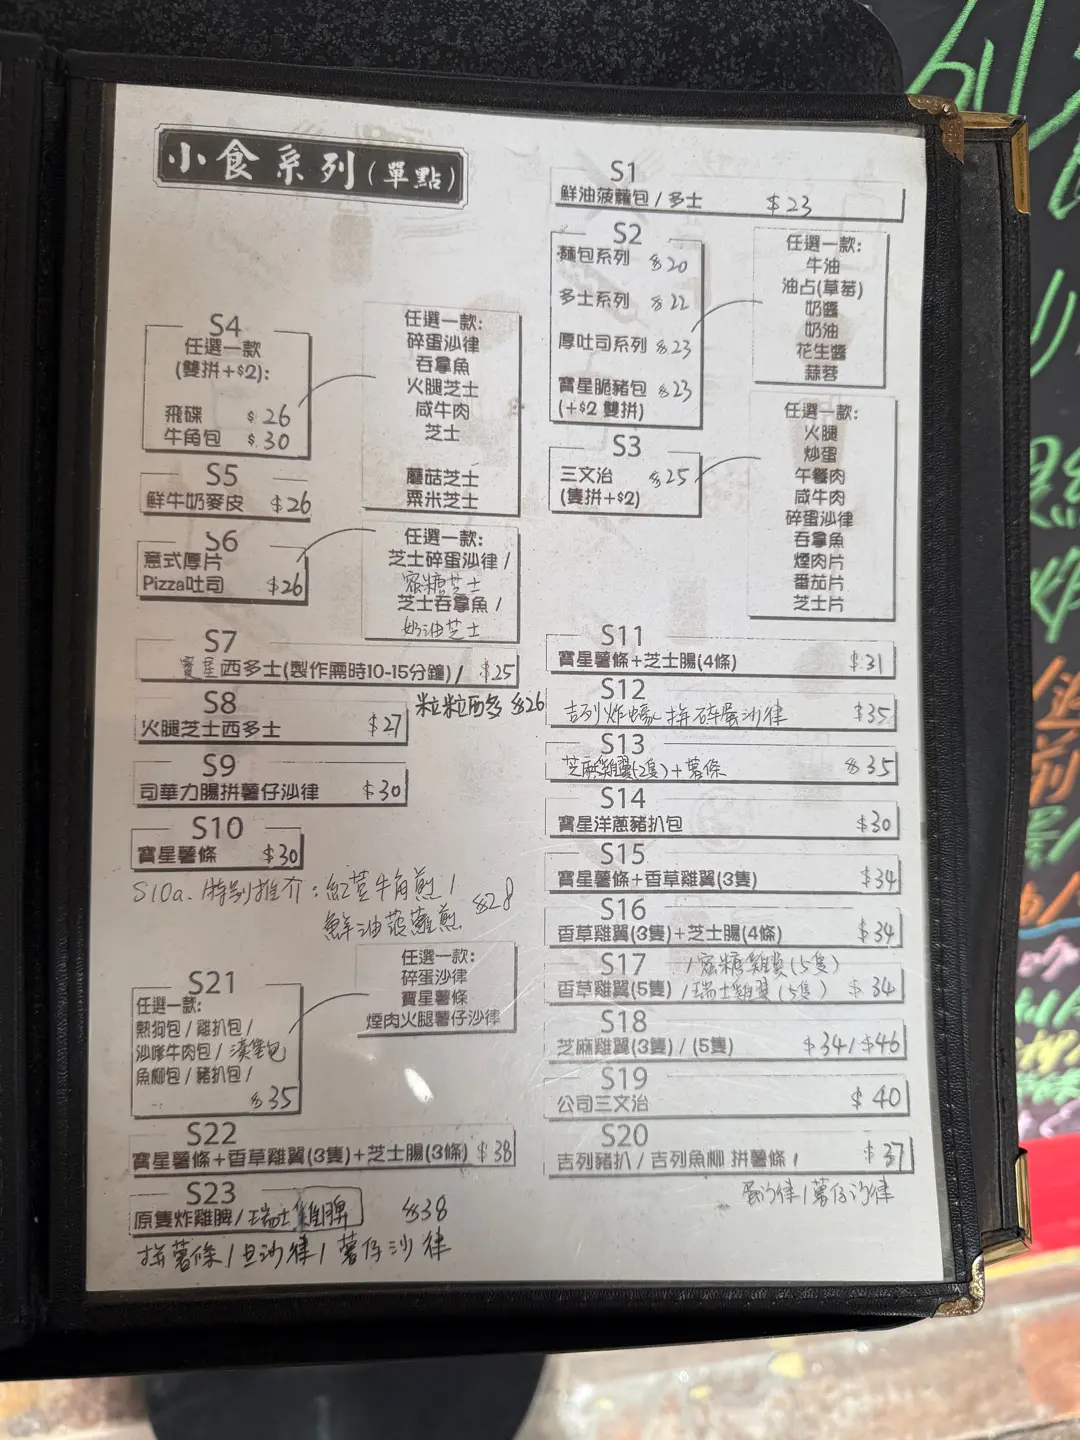 小食系列(單點)
S1
鮮油菠蘿包 / 多士 $23
S2
麵包系列 $20
多士系列 $22
厚吐司系列 $23
寶星脆豬包 $23
(+$2 雙拼)
任選一款:
牛油
油占(草莓)
奶醬
奶油
花生醬
蒜蓉
S3
三文治 $25
(隻拼+$2)
任選一款:
火腿
炒蛋
午餐肉
咸牛肉
碎蛋沙律
吞拿魚
煙肉片
番茄片
芝士片
S4
任選一款
(雙拼+$2):
飛碟 $26
牛角包 $30
任選一款:
碎蛋沙律
吞拿魚
火腿芝士
咸牛肉
芝士
蘑菇芝士
粟米芝士
S5
鮮牛奶麥皮 $26
S6
意式厚片
Pizza吐司 $26
任選一款:
芝士碎蛋沙律 /
蜜糖芝士
芝士吞拿魚 /
奶油芝士
S7
寶星西多士(製作需時10-15分鐘) / $25
粒粒西多 $26
S8
火腿芝士西多士 $27
S9
司華力腸拼薯仔沙律 $30
S10
寶星薯條 $30
S10a. 特別推介: 紅荳牛角煎 /
鮮油菠蘿煎 $28
S11
寶星薯條+芝士腸(4條) $31
S12
吉列炸蠔 拼碎蛋沙律 $35
S13
芝麻雞翼(2隻)+薯條 $35
S14
寶星洋蔥豬扒包 $30
S15
寶星薯條+香草雞翼(3隻) $34
S16
香草雞翼(3隻)+芝士腸(4條) $34
S17 / 蜜糖雞翼(5隻)
香草雞翼(5隻) / 瑞士雞翼(5隻) $34
S18
芝麻雞翼(3隻) / (5隻) $34 / $46
S19
公司三文治 $40
S20
吉列豬扒 / 吉列魚柳 拼薯條 / $37
蛋沙律 / 薯仔沙律
S21
任選一款:
熱狗包 / 雞扒包 /
沙嗲牛肉包 / 漢堡包
魚柳包 / 豬扒包 /
$35
任選一款:
碎蛋沙律
寶星薯條
煙肉火腿薯仔沙律
S22
寶星薯條+香草雞翼(3隻)+芝士腸(3條) $38
S23
原隻炸雞脾 / 瑞士雞脾 $38
拼薯條 / 旦沙律 / 薯仔沙律